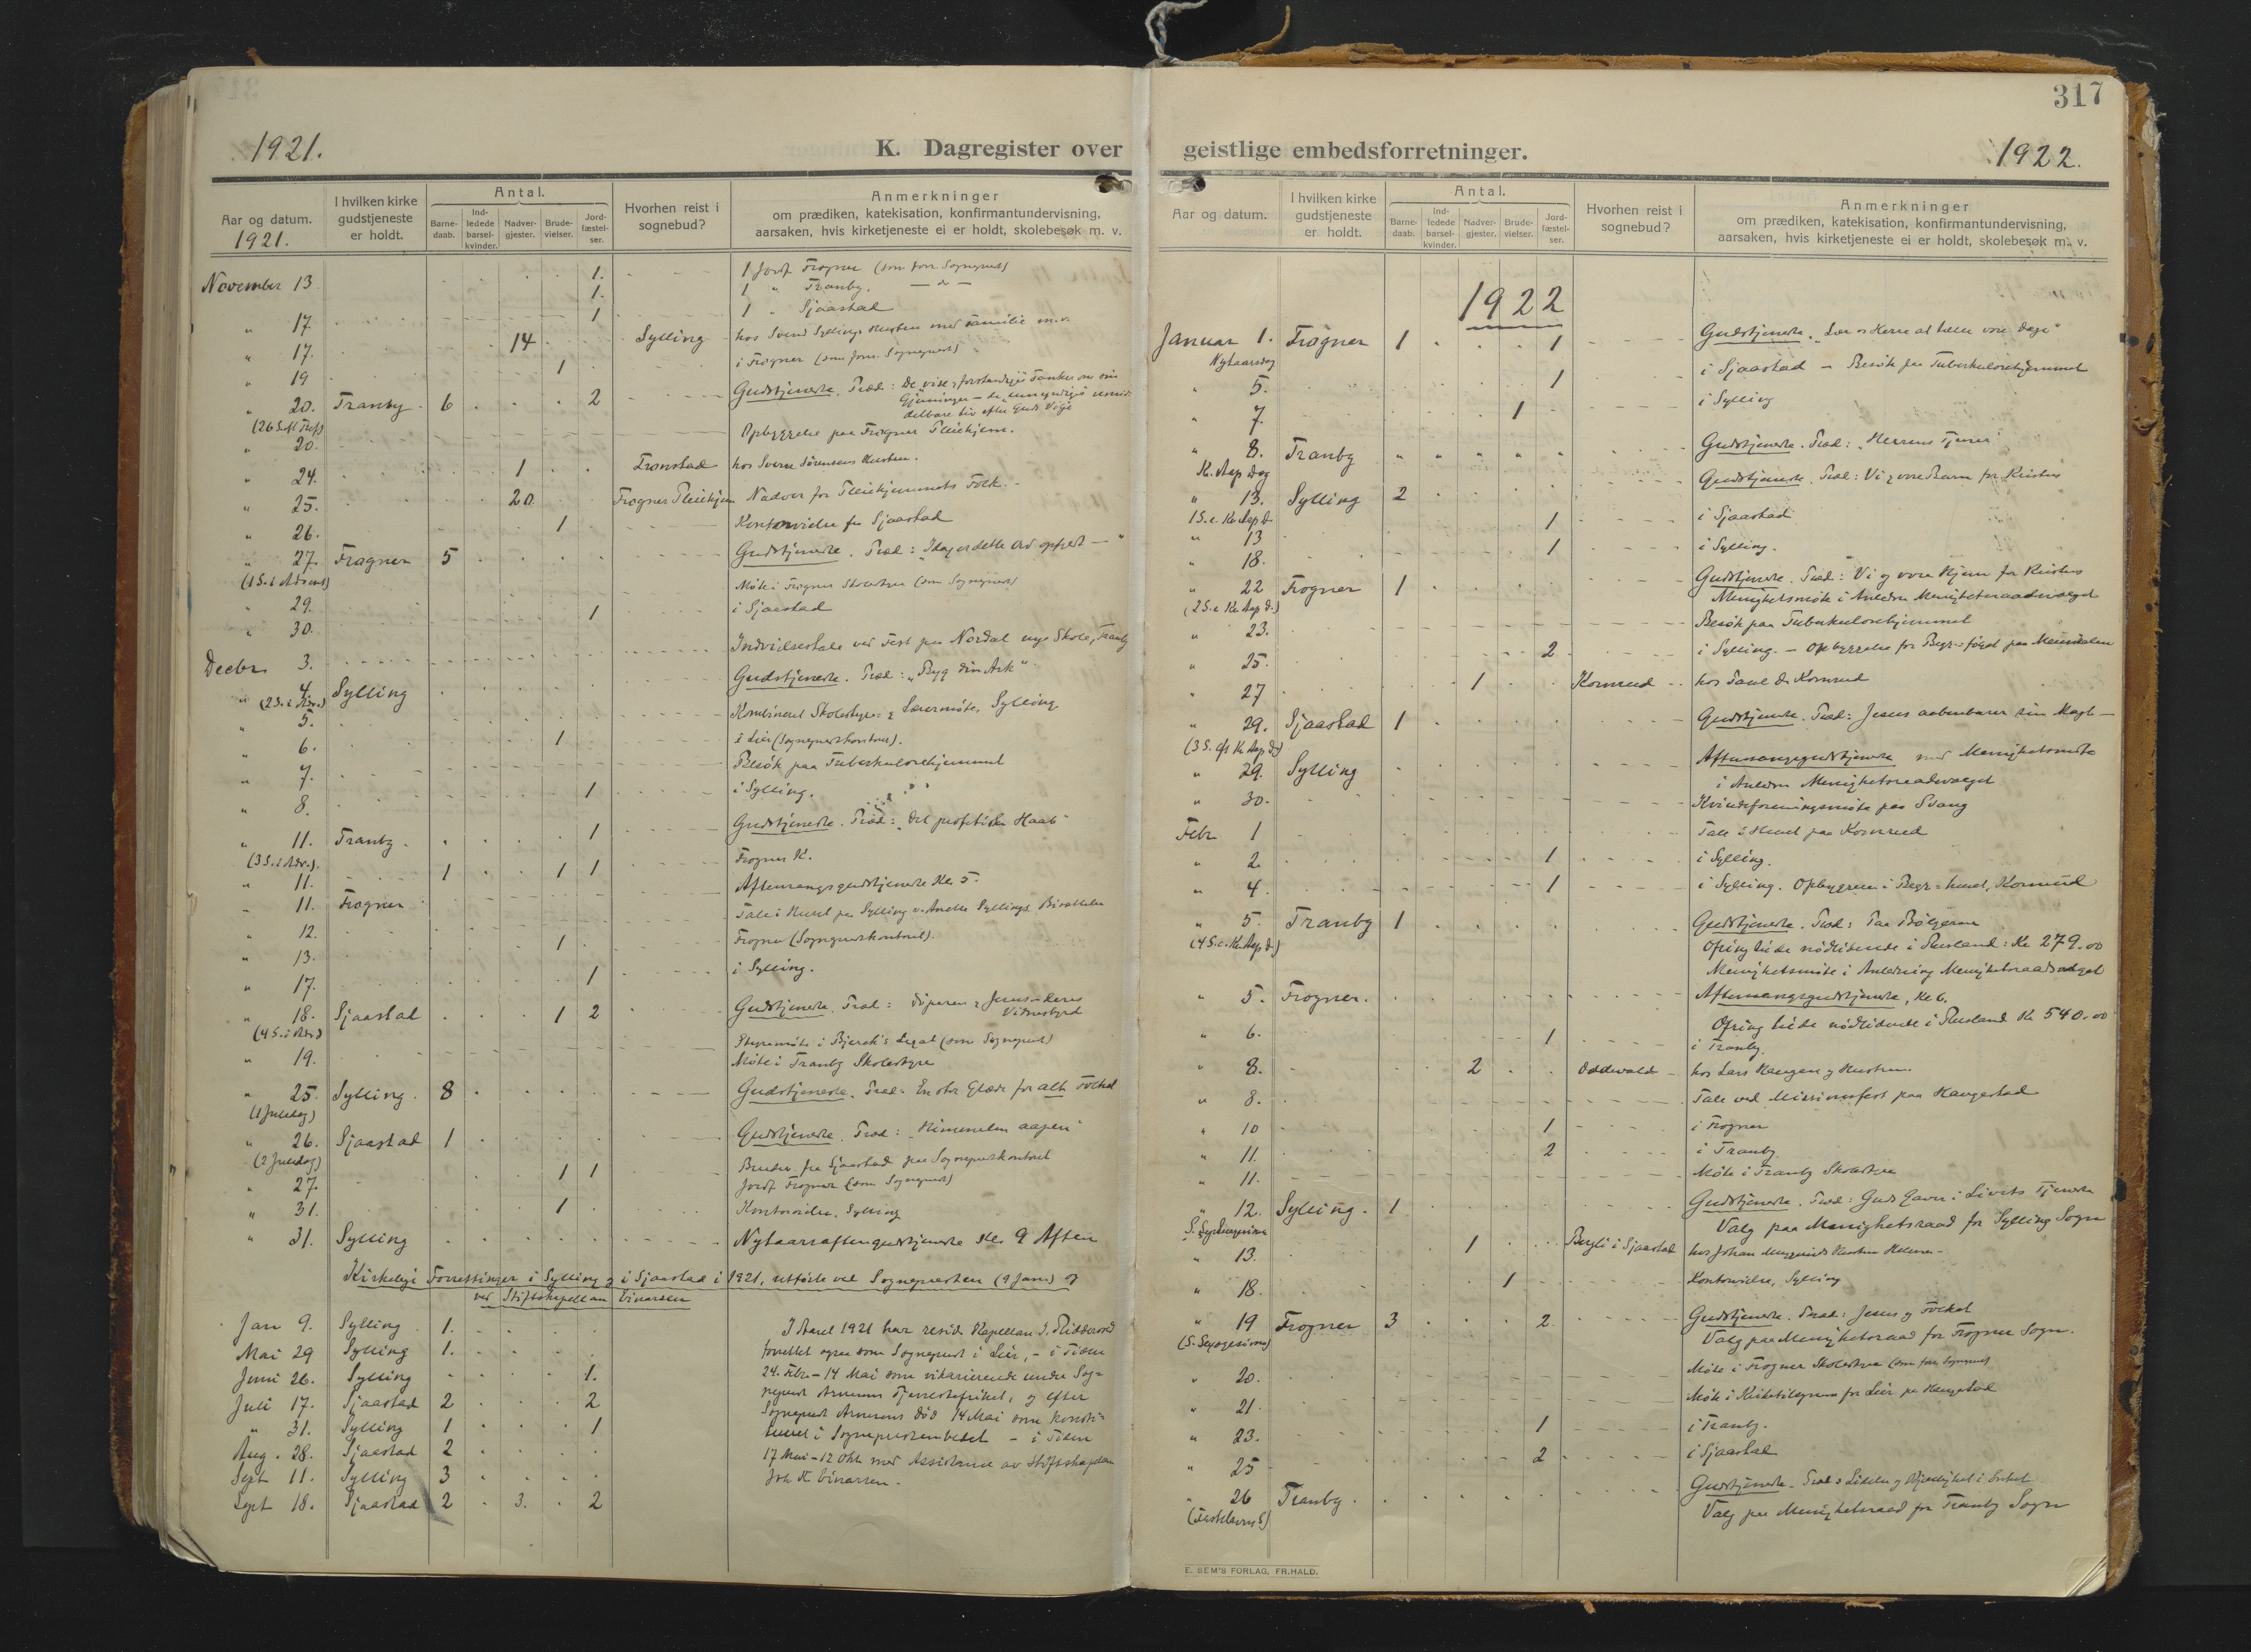 317
1921.
K. Dagregister over
Aar og datum.
1921.
I hvilken kirke
gudstjeneste
er holdt.
Antal.
Barne-
daab.
Ind-
ledede
barsel-
kvinder.
Nadver-
gjester.
Brude-
vielser.
Jord-
fæstel-
ser.
Hvorhen reist i
sognebud?
Anmerkninger
om prædiken, katekisation, konfirmantundervisning,
aarsaken, hvis kirketjeneste ei er holdt, skolebesøk m. v.
November 13 1. 1 Jordf. Frogner (som forr. Sogneprest)
1. 1 " Tranby.
" 17. 1 1 " Sjaastad
" 17. 14 Sylling hos Svend Syllings Hustru med Familie m.v.
" 19 1 i Frogner (som forr. Sogneprest)
" 20. Tranby 6 2 Gudstjeneste. Præd: De vise og forstandiges Tanker om sine
Gjerninger - de umyndiges
delbare Liv efter Guds Vilje
" 20. Opbyggelse paa Frogner Pleiehjem.
" 24. 1 Tronstad hos Sverre Sørensens Hustru.
" 25. 20 Frogner Pleiehjem Nadver for Pleiehjemmets Folk.
" 26. 1 Kontorvielse fra Sjaastad
" 27. Frogner 5 Gudstjeneste. Præd: "Idag er dette Ord opfyldt — "
(1 S. i Advent)
" 29. Møte i Frogner Skolestyre (som Sogneprest)
" 30. 1 i Sjaastad
Decbr. 3. Indvielsestale ved Fest paa Nordal nye Skole, Tranby
" 4. Sylling Gudstjeneste. Præd: "Byg din Ark"
(2 S. i Adv.)
" 5. Kombineret Skolestyre- og Lærermøte, Sylling
" 6. 1 i Lier (Sogneprestkontoret).
" 7. Besøk paa Tuberkulosehjemmet
" 8. 1 i Sylling.
" 11. Tranby 1 Gudstjeneste. Præd: "Det profetiske Haab"
(3 S. i Adv.).
" 11. 1 1 1 Frogner K.
" 11. Frogner Aftensangsgudstjeneste Kl. 5.
" 12. Tale i Huset paa Sylling v. Anette Syllings Bisættelse
" 13. 1 Frogner (Sogneprestkontoret).
" 17. 1 i Sylling.
" 18. Sjaastad 1 2 Gudstjeneste. Præd: Døperen og Jesus - deres
Vidnesbyrd
(4 S. i Adv.)
" 19. Styremøte i Bjerck's Legat (som Sogneprest)
Møte i Tranby Skolestyre
" 25. Sylling 8 Gudstjeneste. Præd: En stor Glæde for alt Folket
(1 Juledag)
" 26. Sjaastad 1 Gudstjeneste. Præd: "Himmelen aapen"
(2 Juledag)
" 27. 1 1 Brudev. fra Sjaastad paa Sogneprestkontoret
Jordf. Frogner (som Sogneprest)
" 31. 1 Kontorvielse, Sylling
" 31. Sylling Nytaarsaftengudstjeneste Kl. 9 Aften
Kirkelige Forretninger i Sylling og i Sjaastad i 1921, utførte ved Sognepresten (9 Jan.) og
ved Stiftskapellan Einarsen
Jan 9. Sylling 1.
Mai 29 Sylling 1.
Juni 26. Sylling 1.
Juli 17. Sjaastad 2 2
" 31. Sylling 1 1
Aug. 28. Sjaastad 2
Sept 11. Sylling 3
Sept 18. Sjaastad 2 3. 2
I Aaret 1921 har resid. Kapellan J. Ridderold
forrettet ogsaa som Sogneprest i Lier, - i Tiden
24. Febr. - 14 Mai som vikarierende under Sog-
neprest Arnesens Tjenestefrihet, og efter
Sogneprest Arnesens Død 14 Mai som konsti-
tueret i Sogneprestembedet - i Tiden
17 Mai - 12 Okt. med Assistance av Stiftskapellan
Joh. Einarsen.
geistlige embedsforretninger.
1922.
Aar og datum.
I hvilken kirke
gudstjeneste
er holdt.
Antal.
Barne-
daab.
Ind-
ledede
barsel-
kvinder.
Nadver-
gjester.
Brude-
vielser.
Jord-
fæstel-
ser.
Hvorhen reist i
sognebud?
Anmerkninger
om prædiken, katekisation, konfirmantundervisning,
aarsaken, hvis kirketjeneste ei er holdt, skolebesøk m. v.
1922
Januar 1. Frogner 1 1 Gudstjeneste. "Lær os Herre at tælle vore Dage"
Nytaarsdag
" 5. 1 i Sjaastad - Besøk paa Tuberkulosehjemmet
" 7. 1 i Sylling
" 8. Tranby Gudstjeneste. Præd: "Herrens Tjener"
K. Aap. Dag
" 13. Sylling 2 Gudstjeneste. Præd: Vi og vore Barn for Kristus
1 S. e. Kr. Aap. d.
" 13 1 i Sjaastad
" 18. 1 i Sylling.
" 22 Frogner 1 Gudstjeneste. Præd: Vi og vore Hjem for Kristus
(2 S. e. Kr. Aap. d.) Menighetsmøte i Anledn. Menighetsraadsvalget
" 23. Besøk paa Tuberkulosehjemmet
" 25. 2 i Sylling. - Opbyggelse for
" 27 1 Kornrud hos Paul Kornrud
" 29. Sjaastad 1 Gudstjeneste. Præd: Jesus aabenbarer sin Magt -
(3 S. e. Kr. Aap. D.)
" 29. Sylling Aftensangsgudstjeneste med Menighetsmøte
i Anledn. Menighetsraadsvalget
" 30. Kvindeforeningsmøte paa Svang
Febr. 1 Tale i Huset paa Kornrud
" 2. 1 i Sylling.
" 4. 1 i Sylling. Opbyggelse i Kornrud
" 5. Tranby 1 Gudstjeneste. Præd: Paa Bølgerne
(4 S. e. Kr. Aap. d.) Ofring til de nødlidende i Rusland: Kr. 279.00
Menighetsmøte i Anledning Menighetsraadsvalget
" 5. Frogner. Aftensangsgudstjeneste, Kl. 6.
Ofring til de nødlidende i Rusland Kr. 540.00
" 6. 1 i Tranby.
" 8. 2 Oddevald hos Lars Haugen og Hustru.
" 8. Tale ved Missionsfest paa Haugestad
" 10 1 i Frogner
" 11. 2 i Tranby
" 11. Møte i Tranby Skolestyre
" 12. Sylling. 1 Gudstjeneste. Præd: Guds Gaver i Livets Tjeneste
S. Septuagesima Valg paa Menighetsraad for Sylling Sogn
" 13. 1 Bergli i Sjaastad hos Johan Hustru
" 18. 1 Kontorvielse, Sylling
" 19 Frogner 3 2 Gudstjeneste. Præd: Jesus og Folket
(S. Sexagesima) Valg paa Menighetsraad for Frogner Sogn.
" 20. Møte i Frogner Skolestyre (som for. Sogneprest)
" 21. Møte i Kirketilsynet for Lier paa Haugestad
" 23. 1 i Tranby.
" 25 2 i Sjaastad
" 26 Tranby. Gudstjeneste. Præd: Lidelse og Herlighet i
(Fastelavns S.) Valg paa Menighetsraad for Tranby Sogn
E. SEM'S FORLAG, FR.HALD.